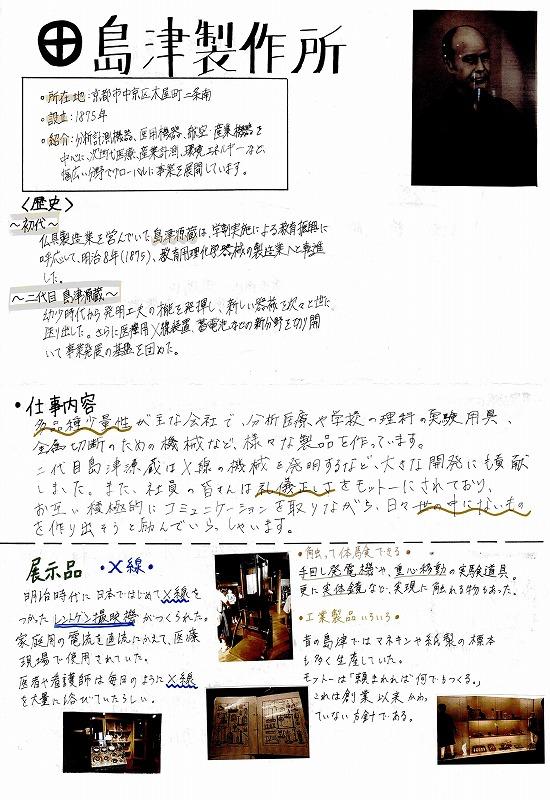 島津製作所
・所在地：京都市中京区木屋町二条南
・設立：1875年
・紹介：分析計測機器、医用機器、航空・産業機器を
中心に、次世代医療、産業計測、環境エネルギーなど、
幅広い分野でグローバルに事業を展開しています。
〈歴史〉
～初代～
仏具製造業を営んでいた島津源蔵は、学制実施による教育振興に
呼応して、明治8年(1875)、教育用理化学器械の製造業へと転進
した。
～二代目 島津源蔵～
幼少時代から発明工夫の才能を発揮し、新しい器械を次々と世に
送り出した。さらに医療用X線装置、蓄電池などの新分野を切り開
いて事業発展の基盤を固めた。
・仕事内容
多品種少量性が主な会社で、分析医療や学校の理科の実験用具、
金属切断のための機械など、様々な製品を作っています。
二代目島津源蔵はX線の機械を発明するなど、大きな開発にも貢献
しました。また、社員の皆さんは礼儀正しさをモットーにされており、
お互い積極的にコミュニケーションを取りながら、日々世の中にないもの
を作り出そうと励んでいらっしゃいます。
展示品 ・X線・
明治時代に日本ではじめてX線を
つかったレントゲン撮影機がつくられた。
家庭用の電流を直流にかえて、医療
現場で使用されていた。
医者や看護師は毎日のようにX線
を大量に浴びていたらしい。
・触って体験できる・
手回し発電機や、重心移動の実験道具。
更に実体鏡など、実現に触れる物もあった。
・工業製品いろいろ・
昔の島津ではマネキンや紙製の標本
も多く生産していた。
モットーは「頼まれれば何でもつくる。」
これは創業以来かわっ
ていない方針である。